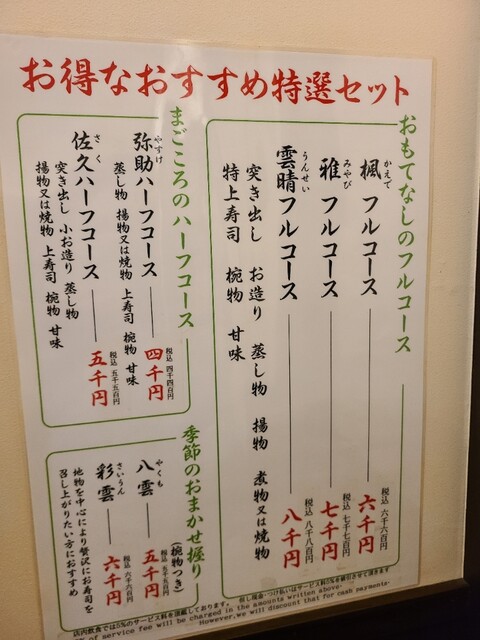 お得なおすすめ特選セット
おもてなしのフルコース
かえで
楓フルコース
六千円
税込 六千六百円
みやび
雅フルコース
七千円
税込 七千七百円
うんせい
雲晴フルコース
八千円
税込 八千八百円
突き出し お造り 蒸し物 揚物 煮物又は焼物
特上寿司 椀物 甘味
まごころのハーフコース
やすけ
弥助ハーフコース
四千円
税込 四千四百円
蒸し物 揚物又は焼物 上寿司 椀物 甘味
さく
佐久ハーフコース
五千円
税込 五千五百円
突き出し 小お造り 蒸し物
揚物又は焼物 上寿司 椀物 甘味
季節のおまかせ握り
(椀物つき)
やくも
八雲
五千円
税込 五千五百円
さいうん
彩雲
六千円
税込 六千六百円
地物を中心により贅沢にお寿司を
召し上がりたい方におすすめ
店内飲食では5%のサービス料を頂戴しております。 但し現金・つけ払いはサービス料5%を値引きさせて頂きます
of service fee will be charged in the amounts written above.
However,we will discount that for cash payments.